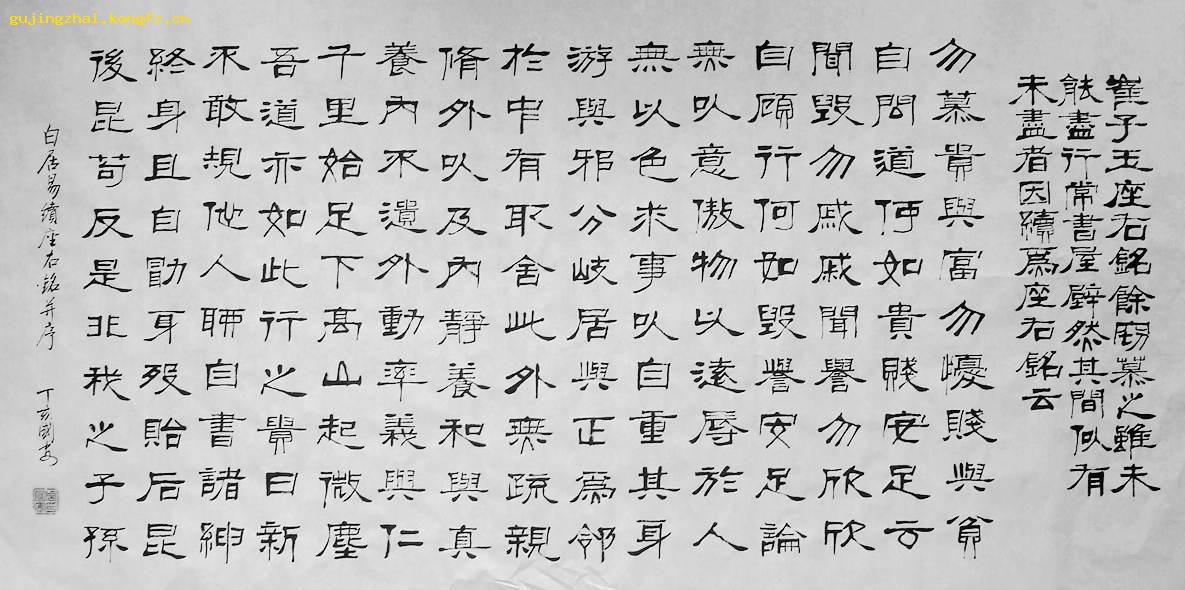 gujingzhai.kongfz.cn
崔子玉座右銘餘竊慕之雖未
能盡行常書屋壁然其間似有
未盡者因續為座右銘云
勿慕貴與富勿懮賤與貧
自問道何如貴賤安足云
聞毀勿戚戚聞譽勿欣欣
自顧行何如毀譽安足論
無以意傲物以遠辱於人
無以色求事以自重其身
游與邪分岐居與正為鄰
於中有取舍此外無疏親
脩外以及內靜養和與真
養內不遺外動率義與仁
千里始足下高山起微塵
吾道亦如此行之貴日新
不敢規他人聊自書諸紳
終身且自勖身歿貽后昆
後昆苟反是非我之子孫
白居易續座右銘并序 丁亥國